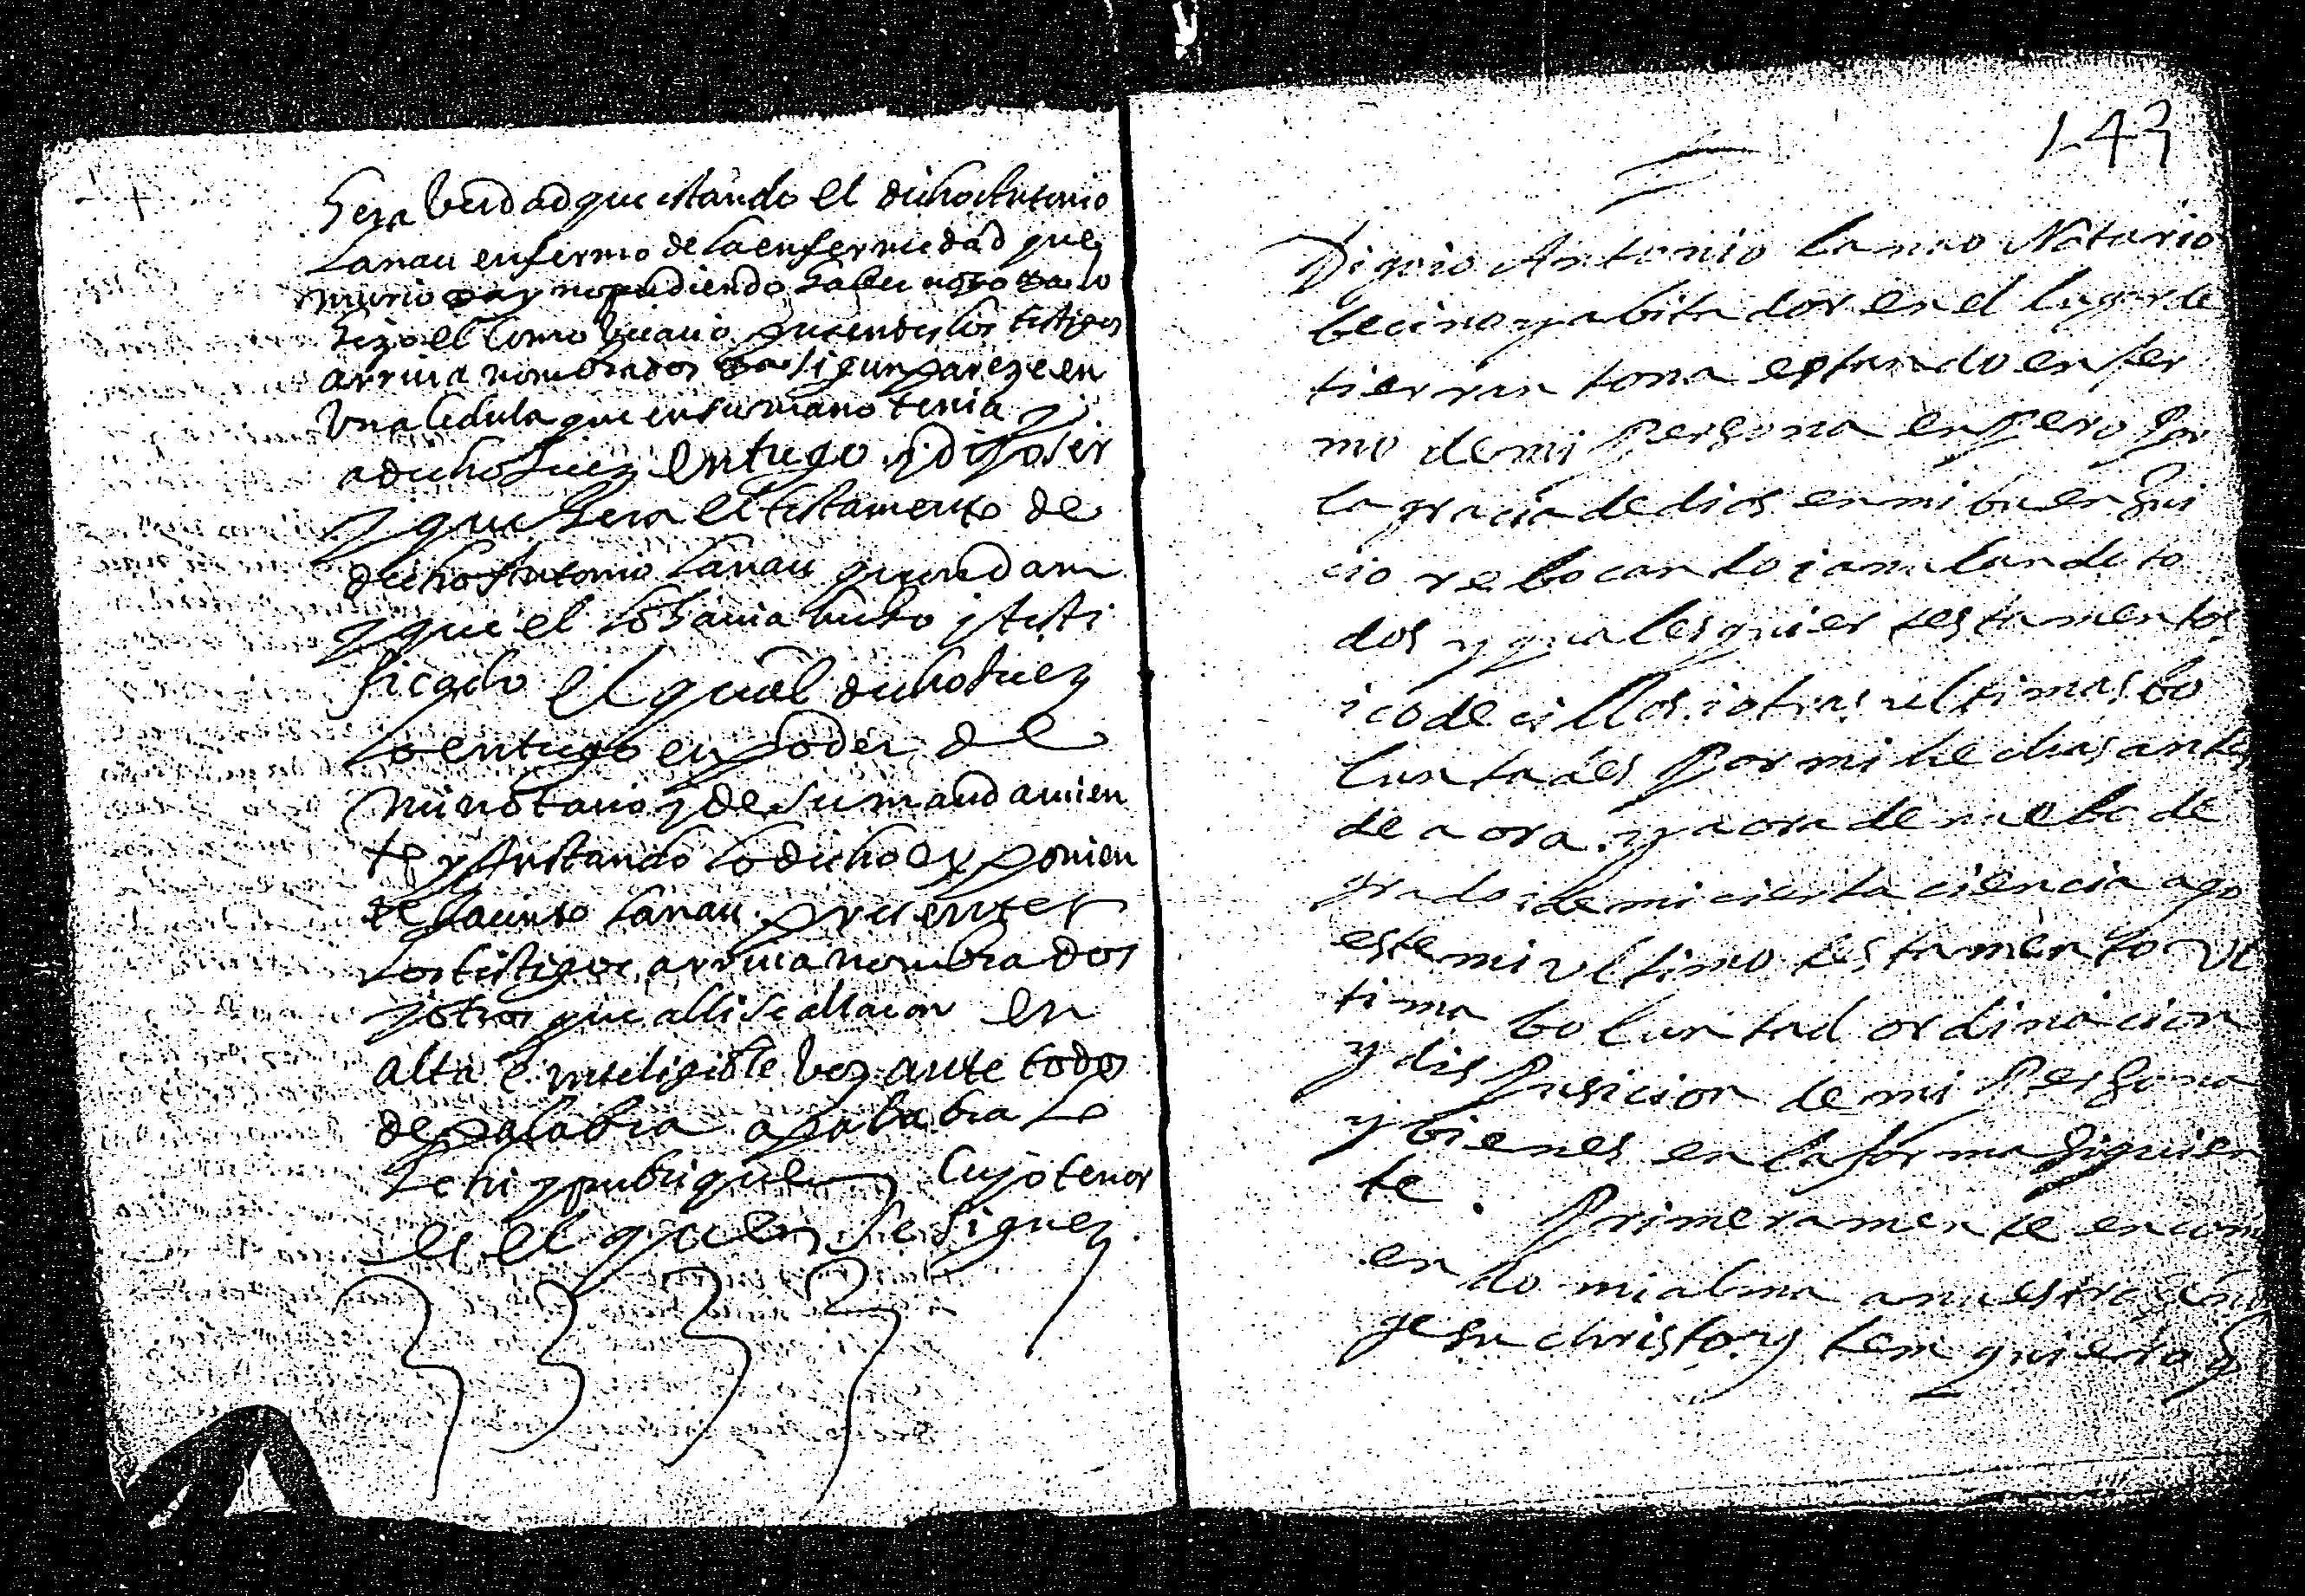 hera verdad que estando el dicho Antonio
Lanau enfermo de la enfermedad que
murio y no pudiendo haber notario lo
hizo el como vicario presentes los testigos
arriua nombrados segun pareze en
vna cedula que en su mano tenia y
a dicho Juez entrego y dijo ser
y que hera el testamento de
dicho Antonio Lanau quondam
y que el lo hauia hecho y testi
ficado el qual dicho Juez
lo entrego en poder de
mi notario y de su mandamien
to y instando lo dicho exponien
te Jacinto Lanau presentes
los testigos arriua nombrados
y otros que alli se allaron en
alta e inteligible voz ante todos
de palabra a palabra lo
lehi y publique cuyo tenor
es el que se sigue
143
Digo io Antonio lanao Notario
becino y abitador en el lugar de
tierran tona estando enfer
mo de mi persona enpero por
la gracia de dios en mi buen Jui
cio rebocando i anulando to
dos y qualesquier testamentos
i codecillos i otras ultimas bo
luntades por mi hechas antes
de aora y aora de nuebo de
grado i de mi cierta ciencia ago
este mi ultimo testamento ul
tima boluntad ordinacion
y dispusicion de mi persona
y bienes en la forma siguien
te . Primeramente encom
endo mi alma a nuestro señor
gesu christo y tem quiero q